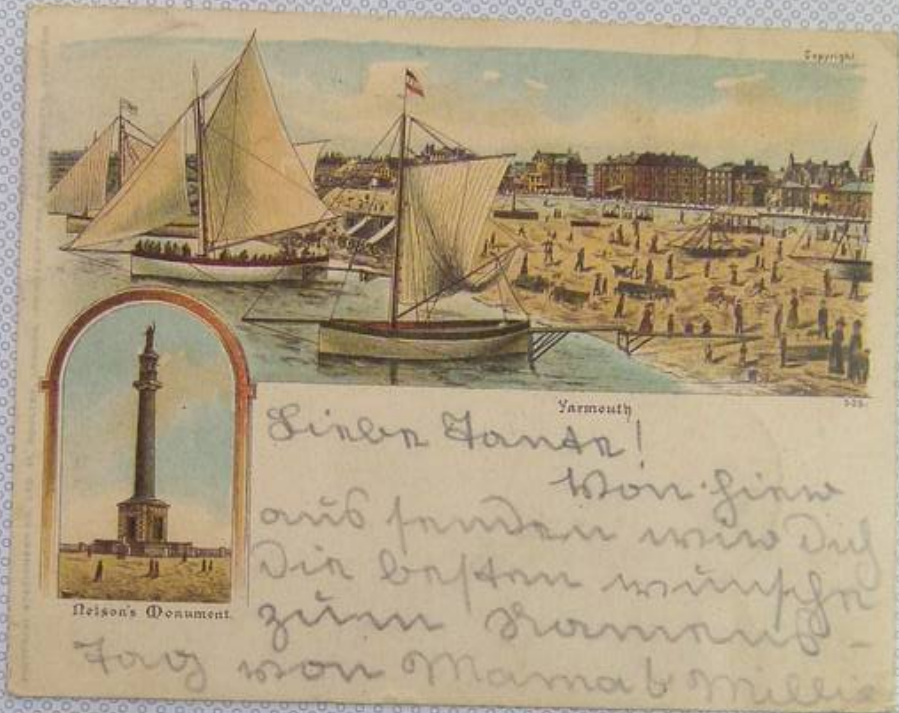 Copyright.
Yarmouth
Nelson's Monument.
Liebe Tante!
Von hier
aus senden wir Dich
die besten wünsche
zum Namens-
Tag von Mama & Millie